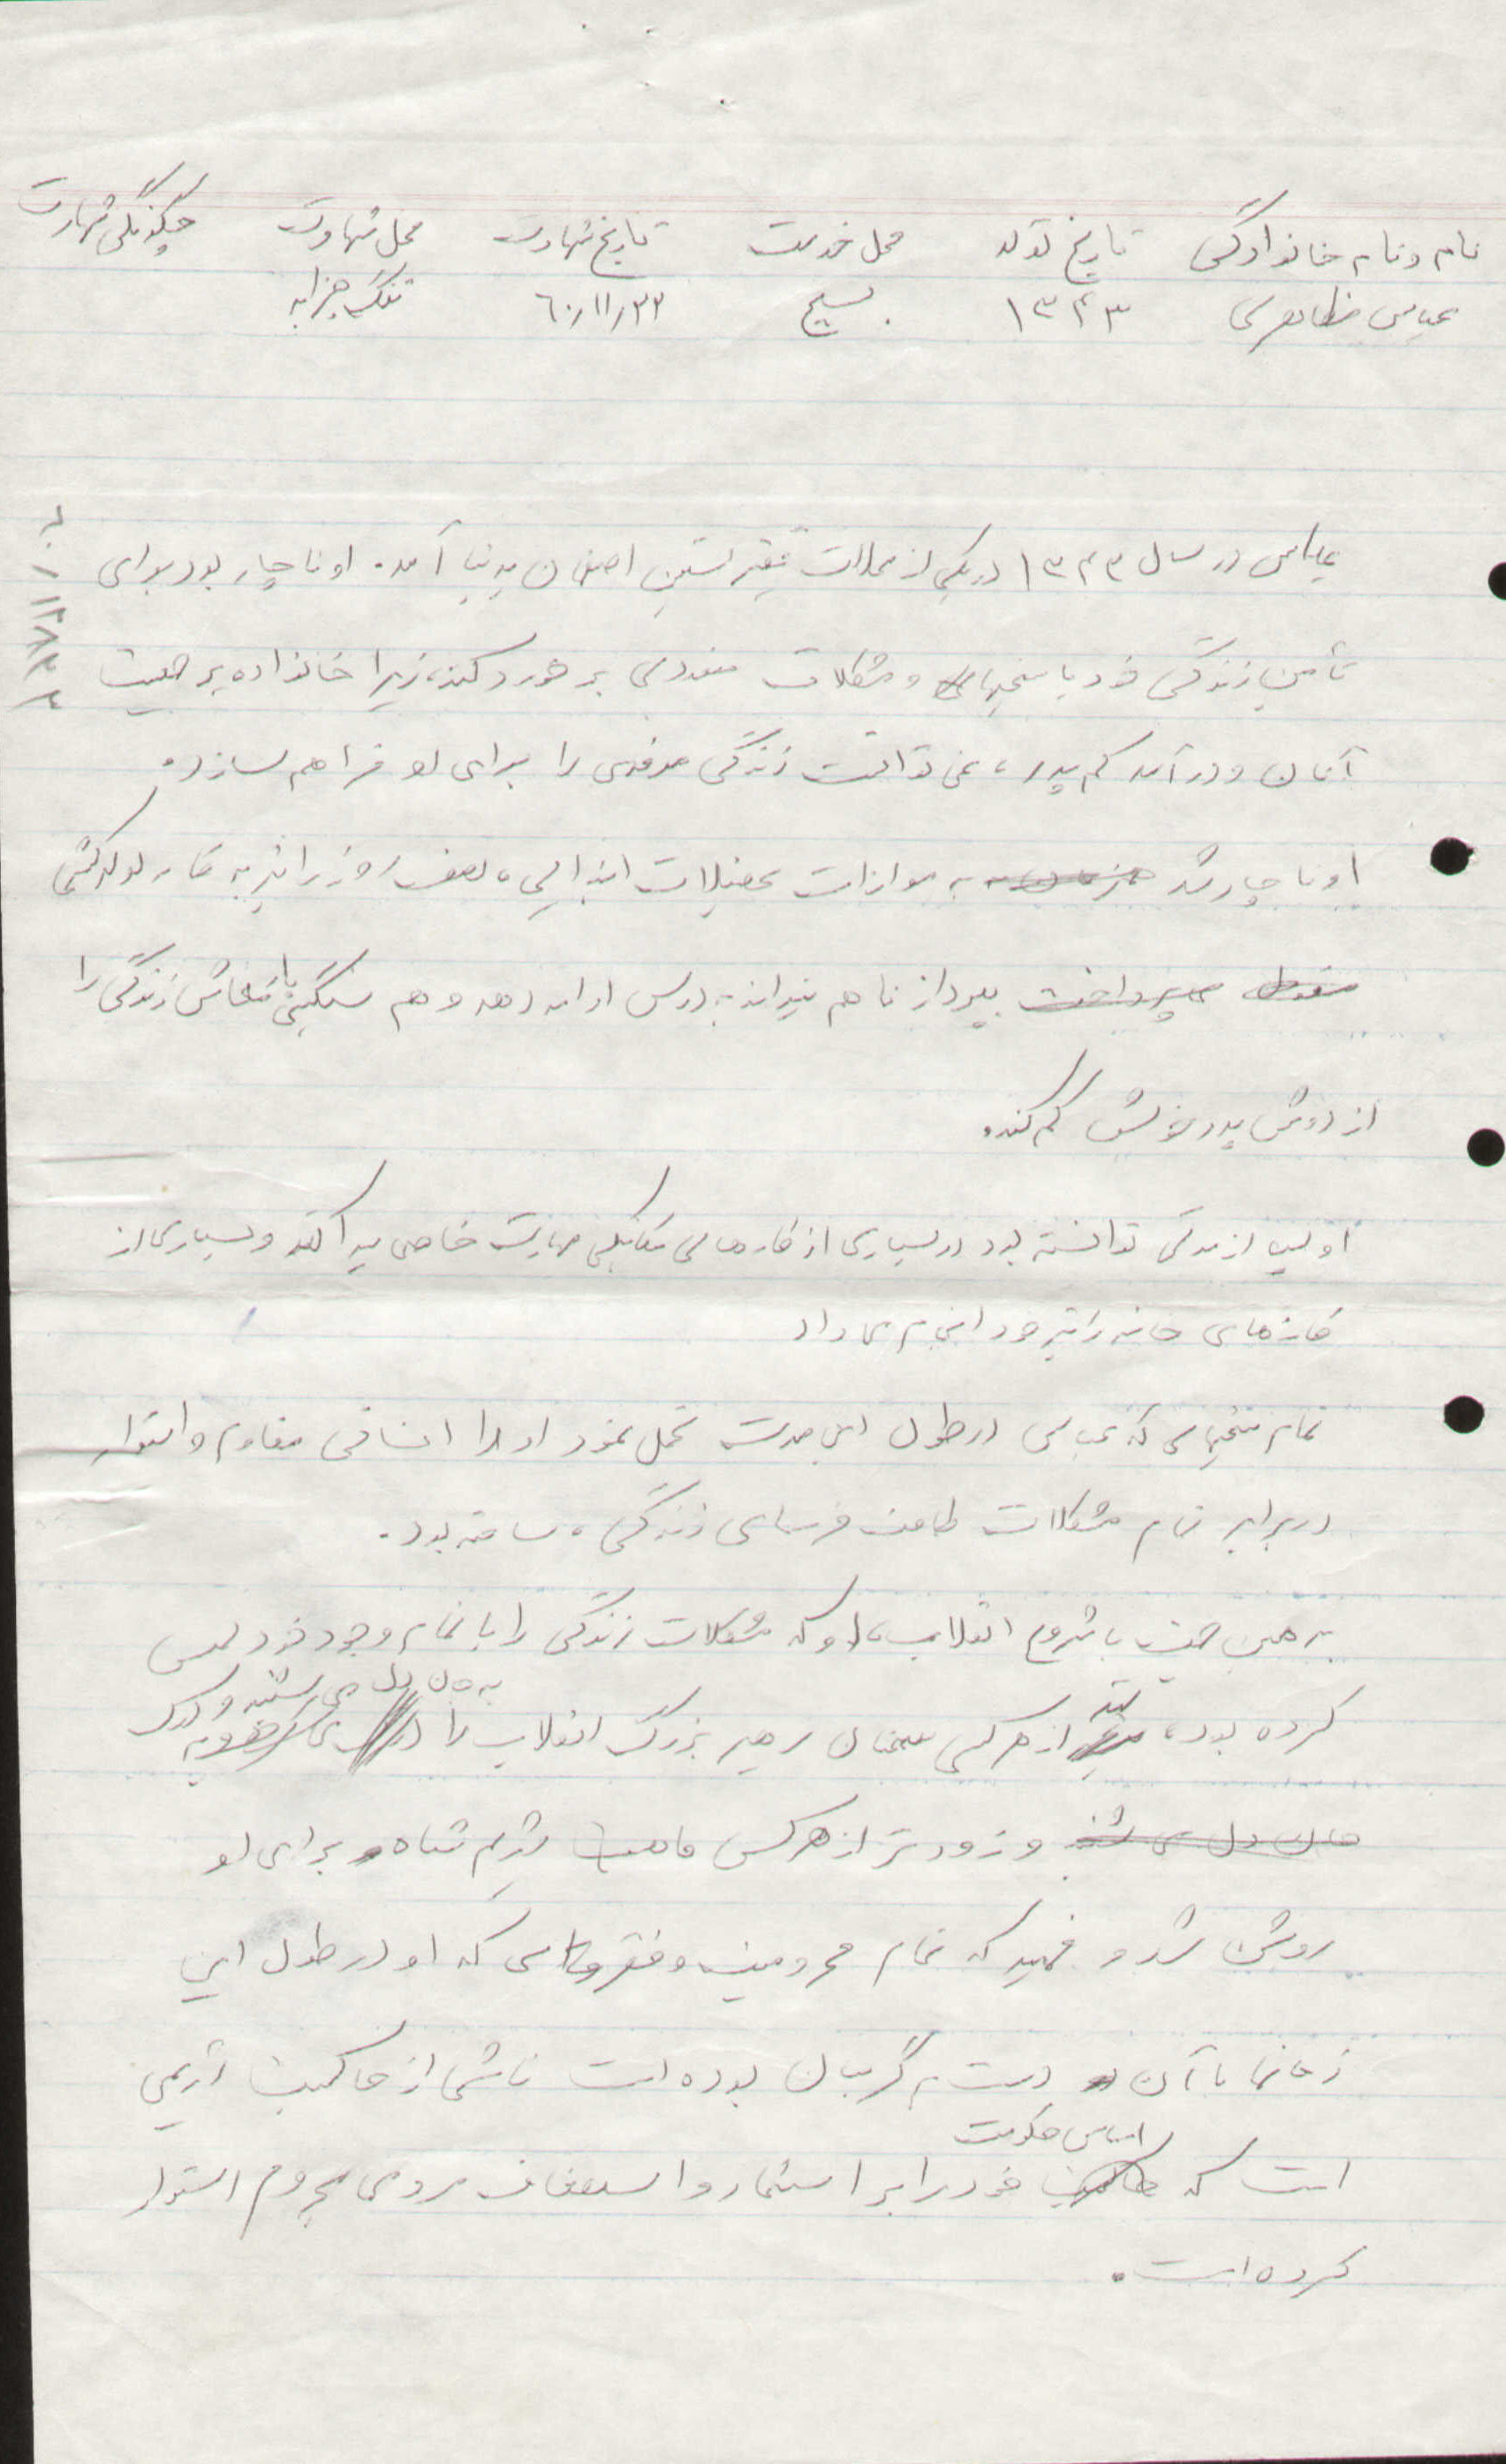 نام و نام خانوادگی تاریخ تولد محل خدمت تاریخ شهادت محل شهادت چگونگی شهادت
عباس مظاهری ۱۳۴۳ بسیج ۶۰/۱۱/۲۲ تنگ چزابه
عباس در سال ۱۳۴۳ در یکی از محلات فقیرنشین اصفهان بدنیا آمد. او ناچار بود برای
تأمین زندگی خود با سختیها و مشکلات متعددی برخورد کند، زیرا خانواده پر جمعیت
آنان و درآمد کم پدر، نمی توانست زندگی مرفهی را برای او فراهم سازد.
او ناچار شد به موازات تحصیلات ابتدایی، نصف روز را نیز به کار لوله کشی
بپردازد تا هم بتواند به درس ادامه دهد و هم سنگینی بار معاش زندگی را
از دوش پدر خویش کم کند.
او پس از مدتی توانسته بود در بسیاری از کارهای مکانیکی مهارت خاصی پیدا کند و بسیاری از
کارهای خانه را نیز خود انجام می داد
تمام سختیهایی که عباس در طول این مدت تحمل نمود او را انسانی مقاوم و استوار
در برابر تمام مشکلات طاقت فرسای زندگی، ساخته بود.
به همین جهت با شروع انقلاب، او که مشکلات زندگی را با تمام وجود خود لمس
کرده بود، بیش از هر کسی سخنان رهبر بزرگ انقلاب را به جان دل می شنید و درک
و زودتر از هر کس ماهیت رژیم شاه برای او
روشن شد و فهمید که تمام محرومیت و فقرهایی که او در طول این
زمانها با آن دست به گریبان بوده است ناشی از حاکمیت رژیمی
است که اساس حکومت خود را بر استثمار و استضعاف مردمی محروم استوار
کرده است.